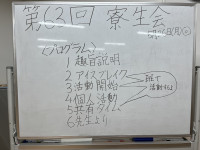 第63回 寮生会
<プログラム>
1 趣旨説明
2 アイスブレイク
3 活動開始
4 個人活動
5 共有タイム
6 先生より
班で
活動するよ